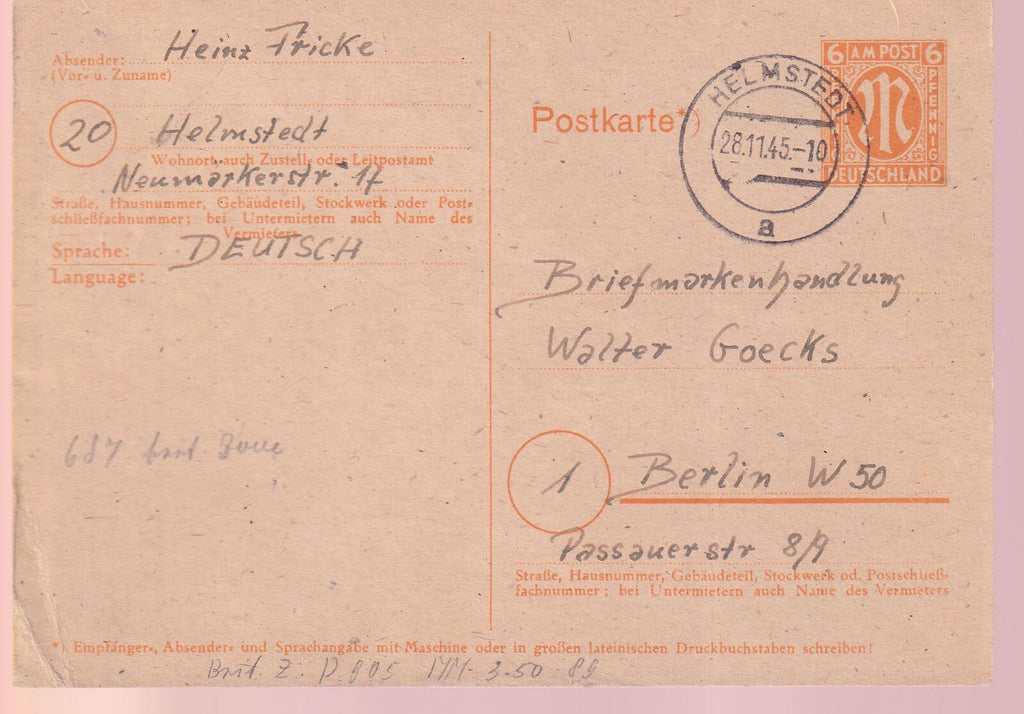 Heinz Fricke
Absender:
(Vor= u. Zuname)
20 Helmstedt
Wohnort, auch Zustell= oder Leitpostamt
Neumärkerstr. 17
Straße, Hausnummer, Gebäudeteil, Stockwerk oder Post=
schließfachnummer; bei Untermietern auch Name des
Vermieters
Sprache: DEUTSCH
Language:
687 brit. Zone
6 AM POST 6
PFENNIG
M
DEUTSCHLAND
Postkarte*)
HELMSTEDT
28.11.45.-10
a
Briefmarkenhandlung
Walter Goecks
1 Berlin W 50
Passauerstr 8/9
Straße, Hausnummer, Gebäudeteil, Stockwerk od. Postschließ=
fachnummer; bei Untermietern auch Name des Vermieters
*) Empfänger=, Absender= und Sprachangabe mit Maschine oder in großen lateinischen Druckbuchstaben schreiben!
Brit. Z. P 905 3.50 89